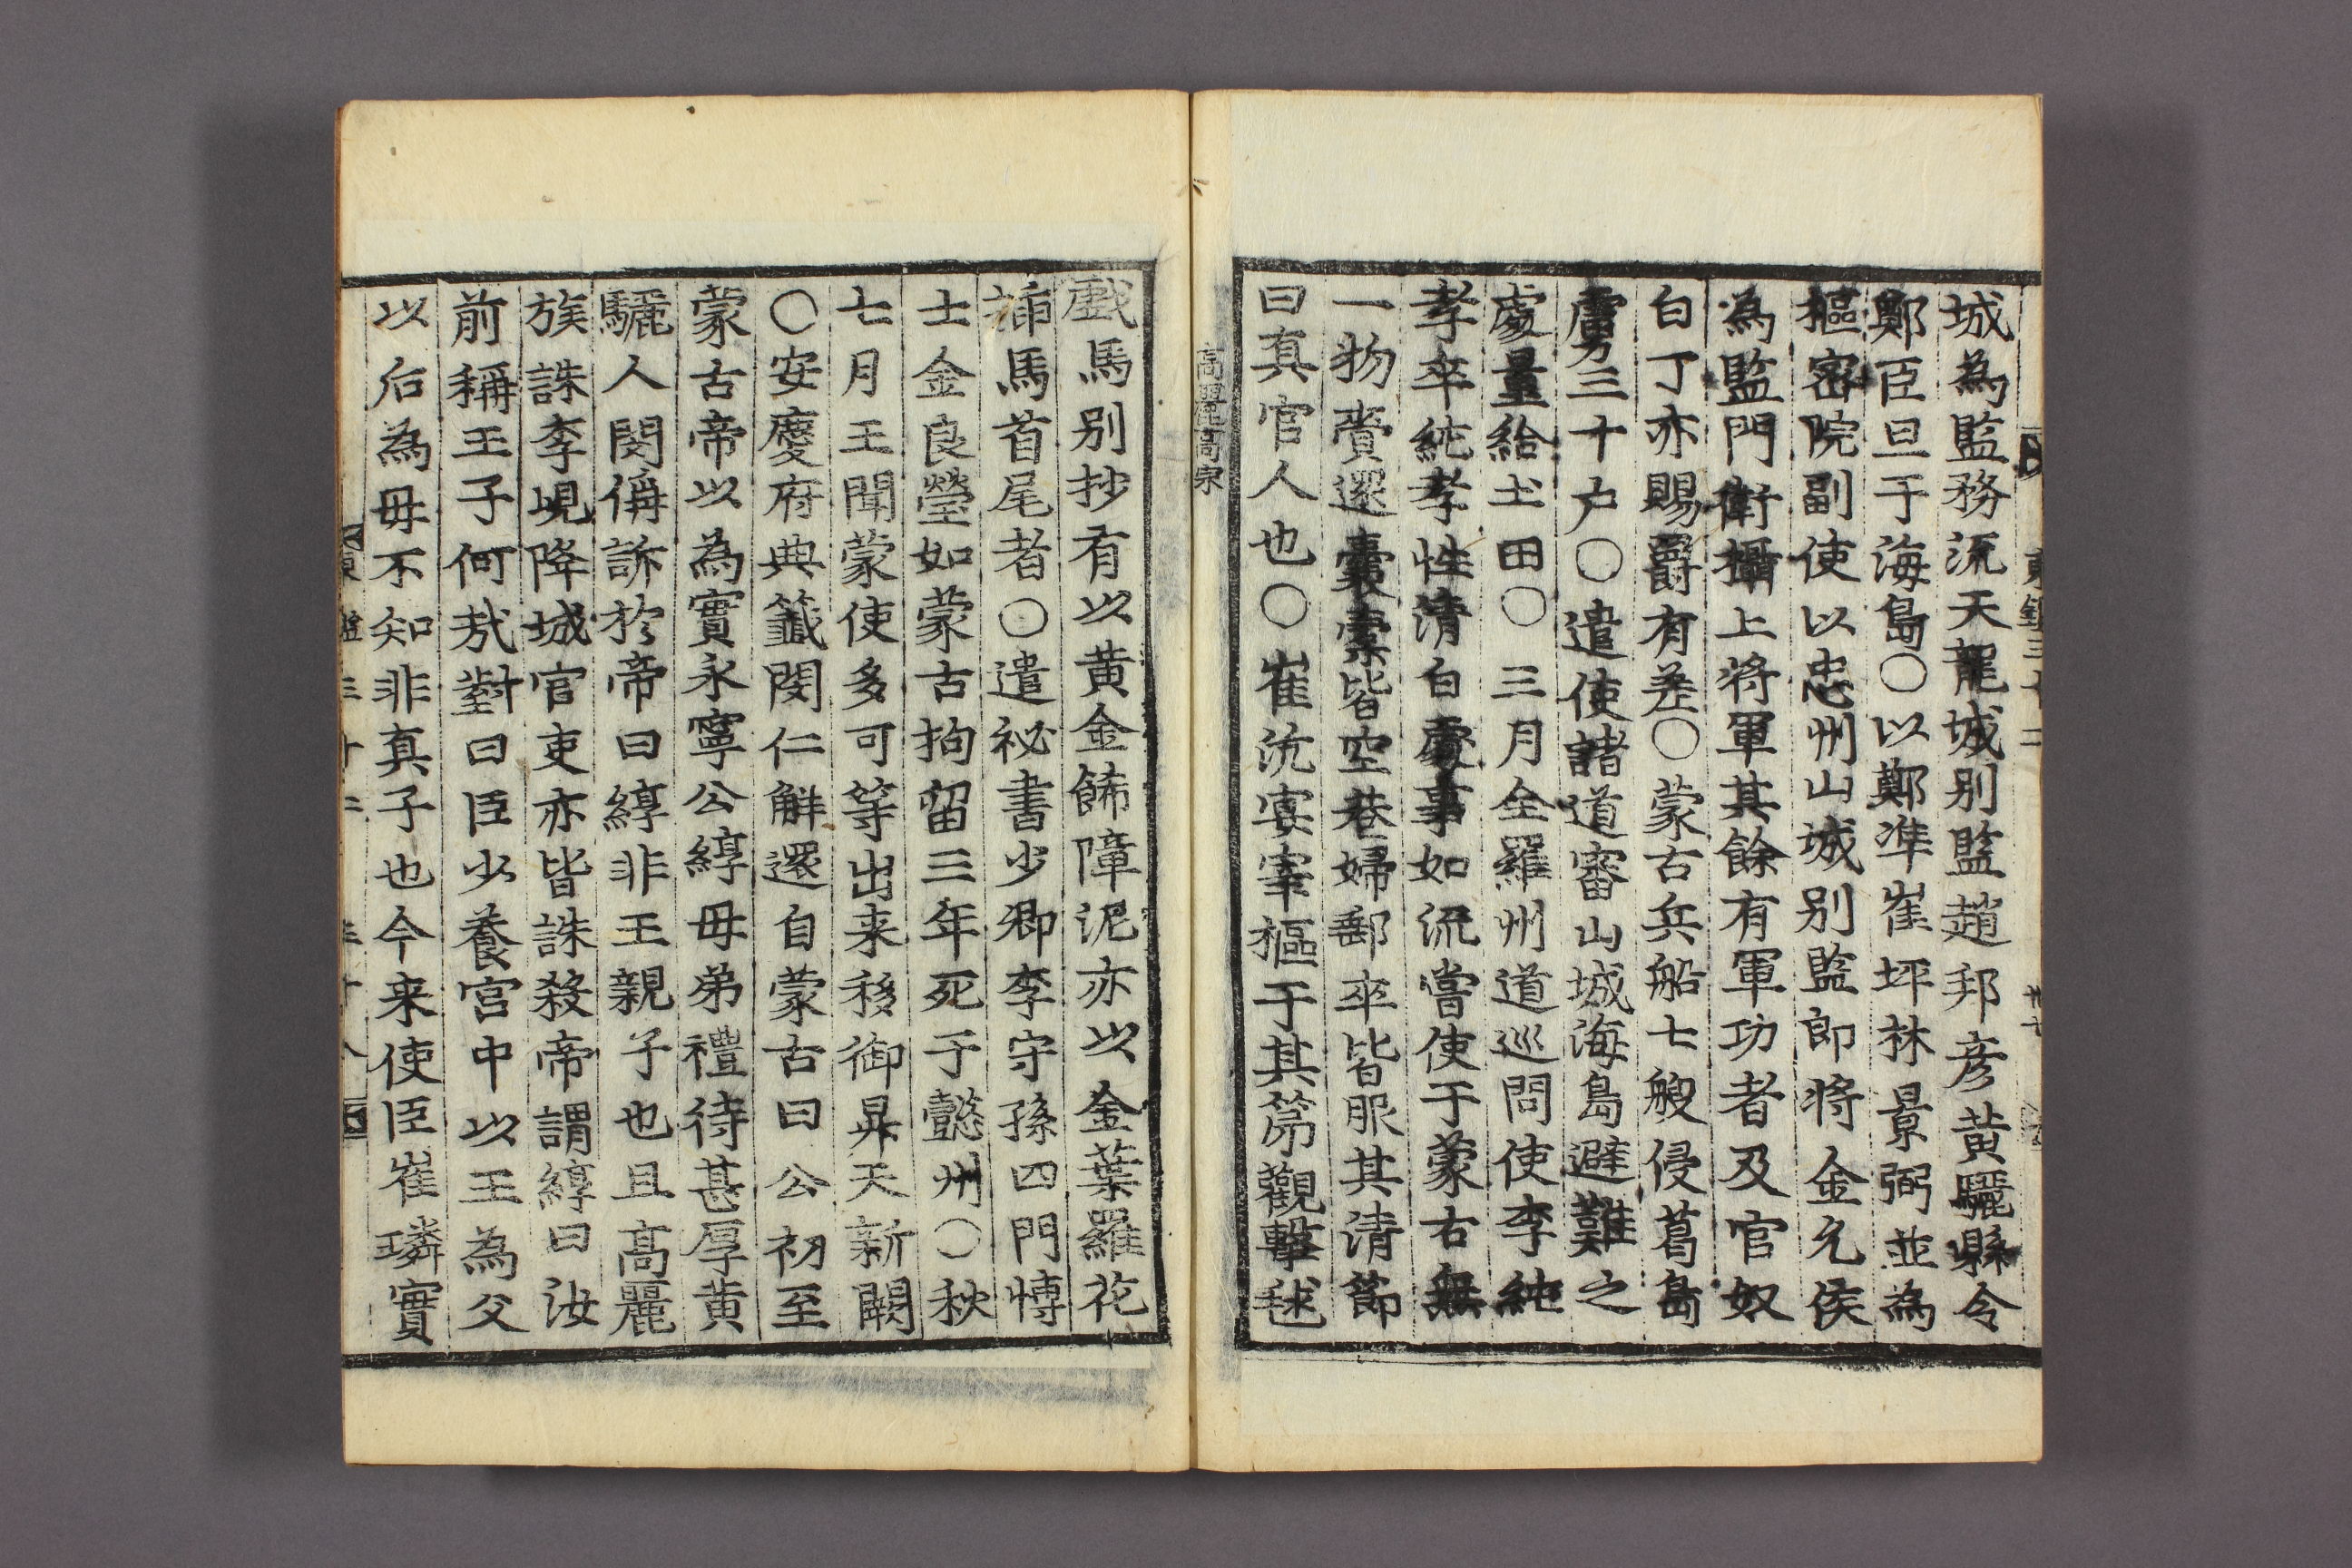 城為監務流天龍城别監趙邦彦黄驪縣令
鄭臣旦于海島〇以鄭準崔坪林景弼並為
樞密院副使以忠州山城别監郎将金允侯
為監門衛攝上將軍其餘有軍功者及官奴
白丁亦賜爵有差〇蒙古兵船七艘侵葛島
虜三十戶〇遣使諸道審山城海島避難之
處量給土田〇三月全羅州道巡問使李純
孝卒純孝性清白處事如流嘗使于蒙古無
一物賫還囊橐皆空巷婦郵卒皆服其清節
曰真官人也〇崔沆宴宰樞于其第觀擊毬
高麗高宗
戱馬别抄有以黄金餙障泥亦以金葉羅花
插馬首尾者〇遣祕書少卿李守孫四門博
士金良瑩如蒙古拘留三年死于懿州〇秋
七月王聞蒙使多可等出来移御昇天新闕
〇安慶府典籤閔仁解還自蒙古曰公初至
蒙古帝以為實永寧公綧母弟禮待甚厚黄
驪人閔偁訴於帝曰綧非王親子也且高麗
族誅李峴降城官吏亦皆誅殺帝謂綧曰汝
前稱王子何㢤對曰臣少養宮中以王為父
以后為毋不知非真子也今来使臣崔璘實